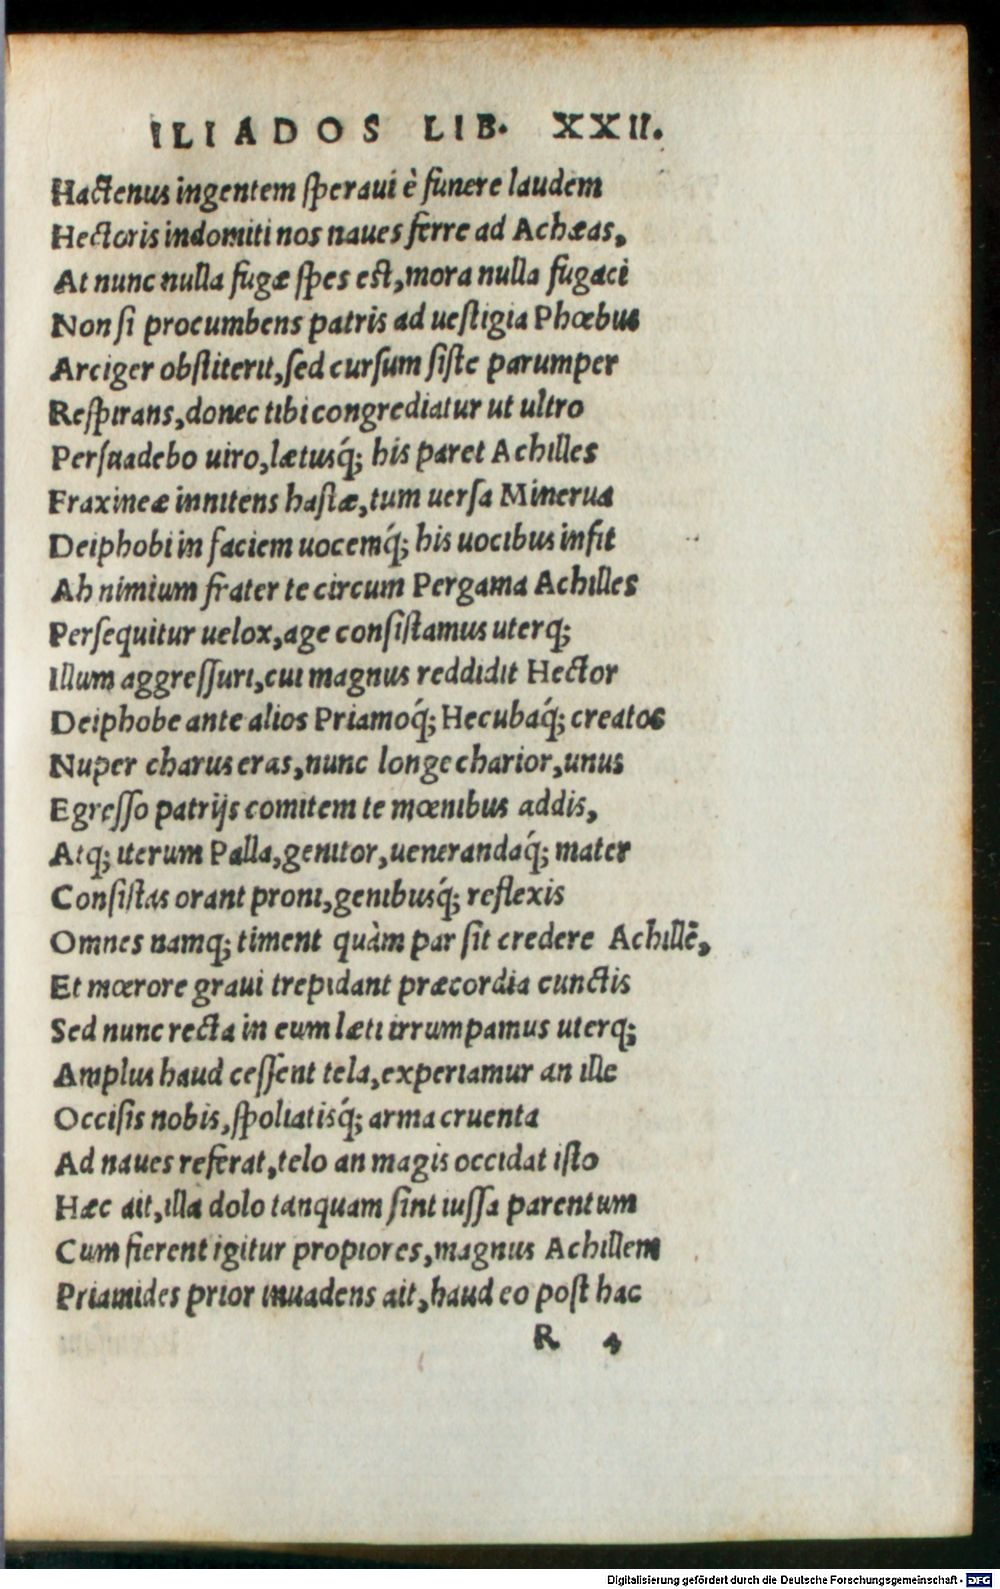 ILIADOS LIB. XXII.
Hactenus ingentem speraui è funere laudem
Hectoris indomiti nos naues ferre ad Achæas,
At nunc nulla fugæ spes est, mora nulla fugaci
Non si procumbens patris ad uestigia Phœbus
Arciger obstiterit, sed cursum siste parumper
Respirans, donec tibi congrediatur ut ultro
Persuadebo uiro, lætusq́; his paret Achilles
Fraxineæ innitens hastæ, tum uersa Minerua
Deiphobi in faciem uocemq́; his uocibus infit
Ah nimium frater te circum Pergama Achilles
Persequitur uelox, age consistamus uterq;
Illum aggressuri, cui magnus reddidit Hector
Deiphobe ante alios Priamoq́; Hecubaq́; creatos
Nuper charus eras, nunc longe charior, unus
Egresso patrijs comitem te mœnibus addis,
Atq; iterum Palla, genitor, uenerandaq́; mater
Consistas orant proni, genibusq́; reflexis
Omnes namq; timent quàm par sit credere Achillẽ,
Et mœrore graui trepidant præcordia cunctis
Sed nunc recta in eum læti irrumpamus uterq;
Amplius haud cessent tela, experiamur an ille
Occisis nobis, spoliatisq́; arma cruenta
Ad naues referat, telo an magis occidat isto
Hæc ait, illa dolo tanquam sint iussa parentum
Cum fierent igitur propiores, magnus Achillem
Priamides prior inuadens ait, haud eo post hac
R 4
Digitalisierung gefördert durch die Deutsche Forschungsgemeinschaft - DFG